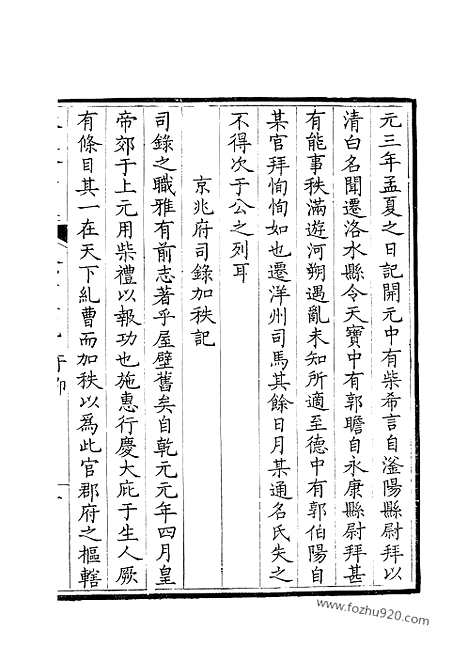 元三年孟夏之日記開元中有柴希言自滏陽縣尉拜以
清白名聞遷洛水縣令天寶中有郭瞻自永康縣尉拜甚
有能事秩滿遊河朔遇亂未知所適至德中有郭伯陽自
某官拜恂恂如也遷洋州司馬其餘日月某通名氏失之
不得次于公之列耳
京兆府司錄加秩記
司錄之職雅有前志著乎屋壁舊矣自乾元元年四月皇
帝郊于上元用柴禮以報功也施惠行慶大庇于生人厥
有條目其一在天下糺曹而加秩以為此官郡府之樞轄
www.fozhu920.com